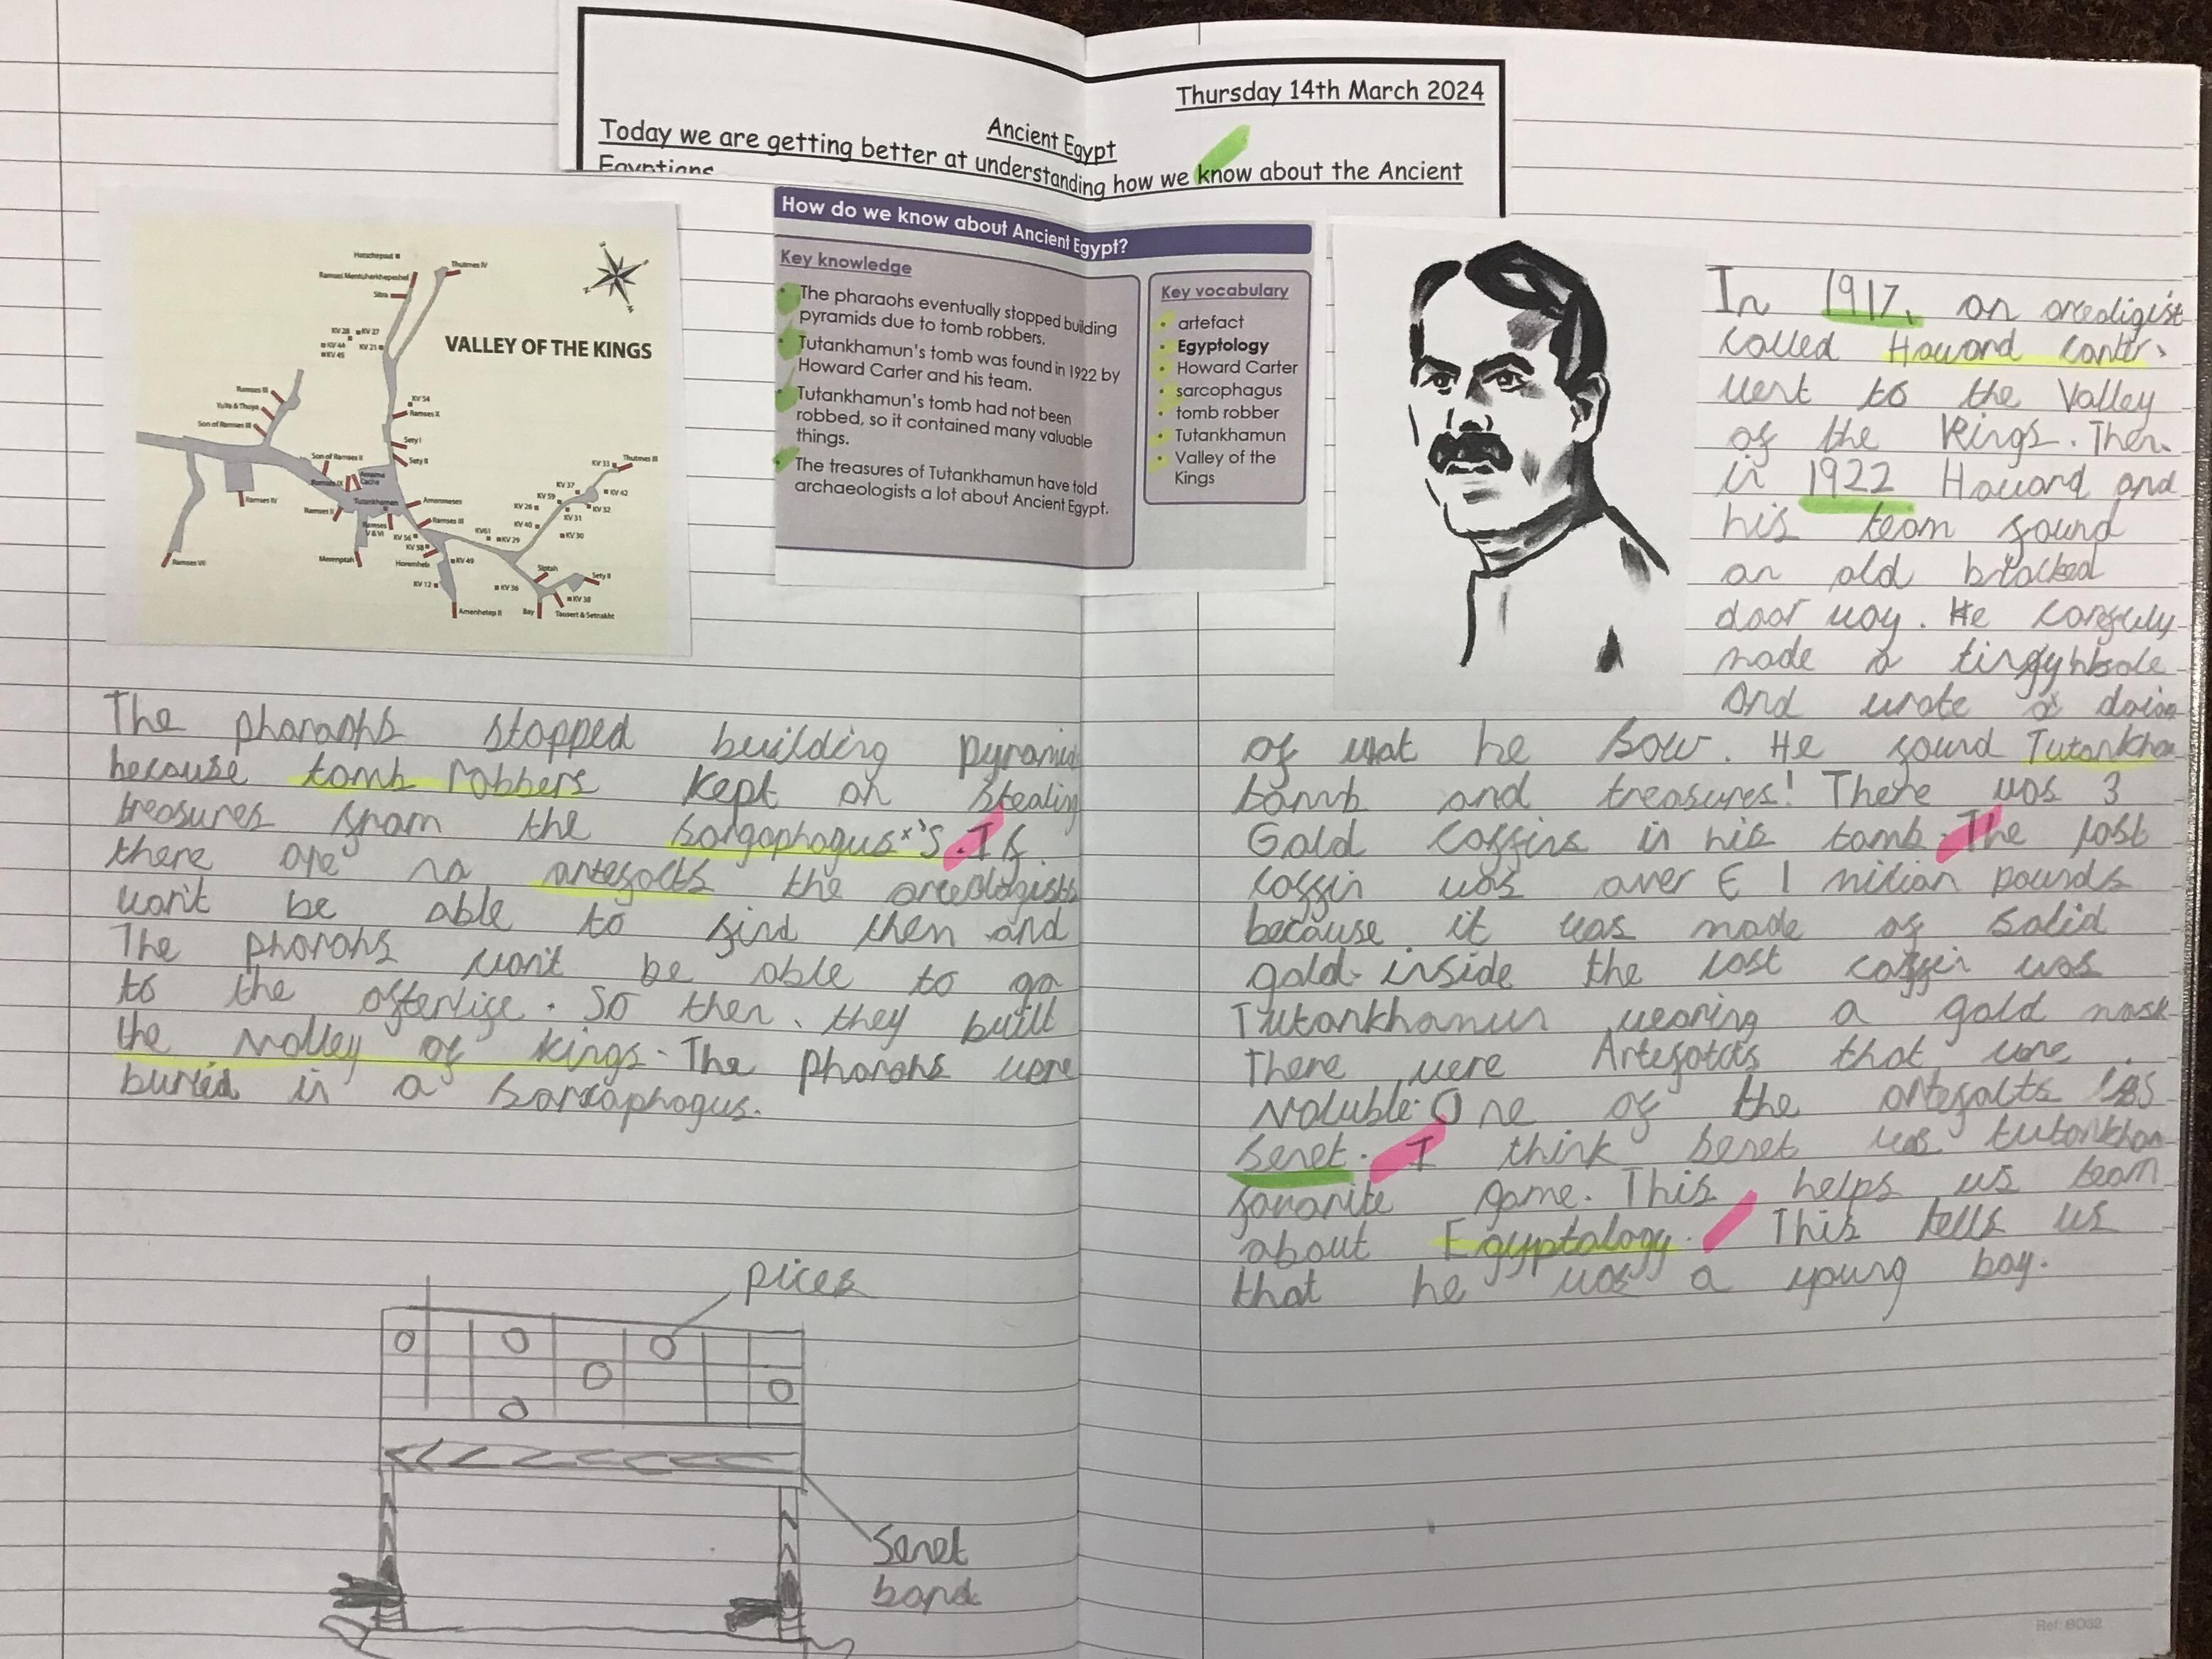 Thursday 14th March 2024
Ancient Egypt
Today we are getting better at understanding how we know about the Ancient
Egyptians
Hatschepsut
Ramses Mentuherkhepeshef
Sitra
Thutmes IV
VALLEY OF THE KINGS
KV 28
KV 27
KV 44
KV 45
KV 21
Ramses III
Yuita & Thuya
Son of Ramses III
KV 54
Ramses X
Sety I
Sety II
Son of Ramses II
Ramses IX
Amarna
Cache
Tutankhamen
Ramses II
Ramses IV
Ramses
V & VI
Merenptah
Ramses VII
Amenmeses
Ramses III
KV 56
KV 58
Horemheb
KV 12
KV 49
Amenhetep II
KV61
KV 29
KV 40
KV 26
KV 59
KV 37
KV 33
Thutmes III
KV 42
KV 32
KV 31
KV 30
KV 36
Siptah
Sety II
KV 38
Bay
Tausert & Setnakht
How do we know about Ancient Egypt?
Key knowledge
• The pharaohs eventually stopped building
pyramids due to tomb robbers.
• Tutankhamun's tomb was found in 1922 by
Howard Carter and his team.
• Tutankhamun's tomb had not been
robbed, so it contained many valuable
things.
• The treasures of Tutankhamun have told
archaeologists a lot about Ancient Egypt.
Key vocabulary
• artefact
• Egyptology
• Howard Carter
• sarcophagus
• tomb robber
• Tutankhamun
• Valley of the
Kings
The pharaohs stopped building pyramid
because tomb robbers kept on stealing
treasures from the sorgophogus's. If
there are no artefacts the areologists
won't be able to find them and
The pharohs won't be able to go
to the afterlife. So then, they built
the valley of kings. The pharohs were
buried in a sarcaphogus.
pices
Senet
board
In 1917, an areoligist
called Howard
went to the Valley
of the Kings. Then,
in 1922 Howard and
his team found
an old blocked
door way. He carefuly
made a hole
And wrote a
of what he saw. He found Tutankha
tomb and treasures! There was 3
Gold coffins in his tomb. The last
coffin was over £ 1 milion pounds
because it was made of solid
gold. inside the last coffin was
Tutankhamun wearing a gold mask
There were Artefacts that were
valuble. One of the artefacts was
Senet. I think senet was tutankham
favorite game. This helps us learn
about Egyptology. This tells us
that he was a young boy.
Ref: 6032